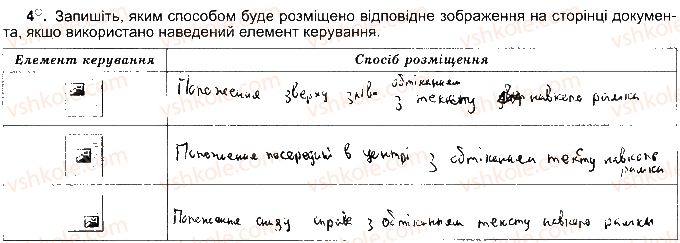 4°. Запишіть, яким способом буде розміщено відповідне зображення на сторінці докумен-
та, якщо використано наведений елемент керування.
Елемент керування Спосіб розміщення
Положення зверху зліва з обтіканням тексту навколо рамки
Положення посередині в центрі з обтіканням тексту навколо
рамки
Положення знизу справа з обтіканням тексту навколо рамки